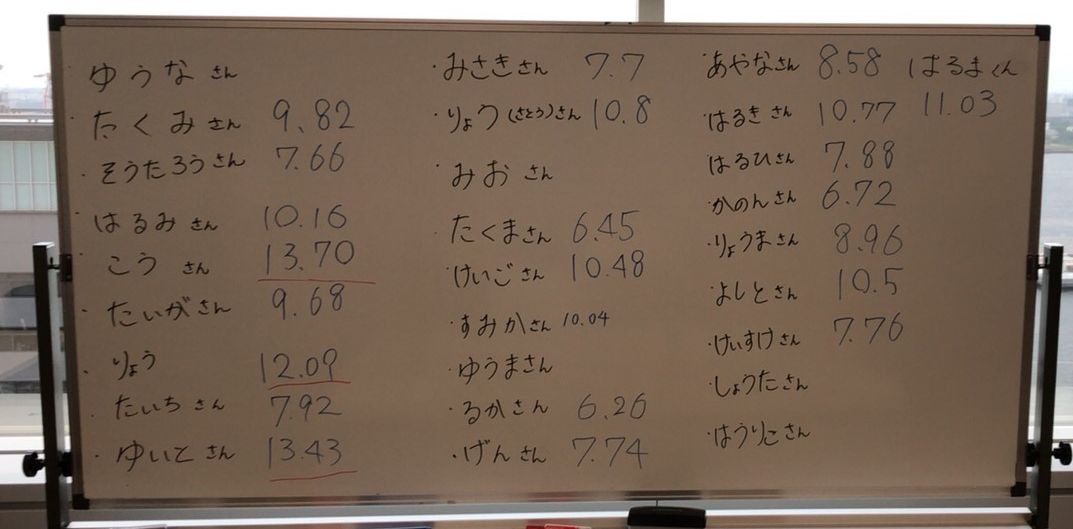 ・ゆうなさん
・たくみさん 9.82
・そうたろうさん 7.66
・はるみさん 10.16
・こうさん 13.70
・たいがさん 9.68
・りょう 12.09
・たいちさん 7.92
・ゆいとさん 13.43
・みさきさん 7.7
・りょう(さとう)さん 10.8
・みおさん
・たくまさん 6.45
・けいごさん 10.48
・すみかさん 10.04
・ゆうまさん
・るかさん 6.26
・げんさん 7.74
・あやなさん 8.58
・はるきさん 10.77
・はるひさん 7.88
・かのんさん 6.72
・りょうまさん 8.96
・よしとさん 10.5
・けいすけさん 7.76
・しょうたさん
・はうりこさん
はるまくん
11.03